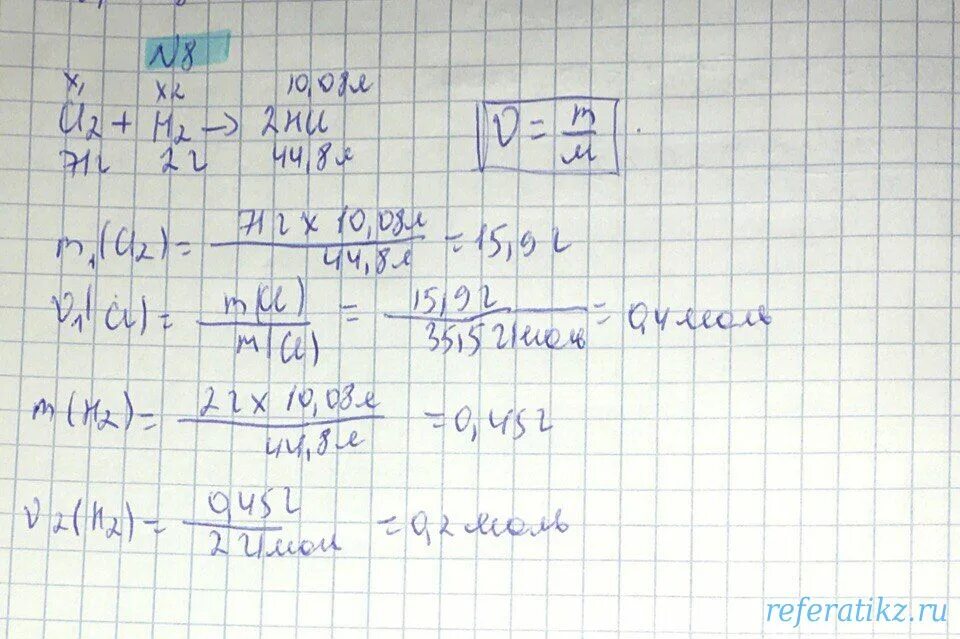 N8
x₁ x₂ 10,08л
Cl₂ + H₂ → 2HCl
71г 2г 44,8л
ν = m/M
m₁(Cl₂) = 71г x 10,08л / 44,8л = 15,9г
ν₁(Cl) = m(Cl) / m(Cl) = 15,9г / 35,5г/моль = 0,4моль
m(H₂) = 2г x 10,08л / 44,8л = 0,45г
ν2(H₂) = 0,45г / 2г/мол = 0,2моль
referatikz.ru